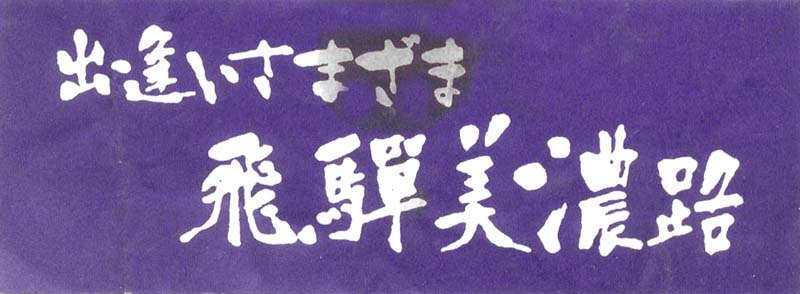 出逢いさまざま
飛騨美濃路